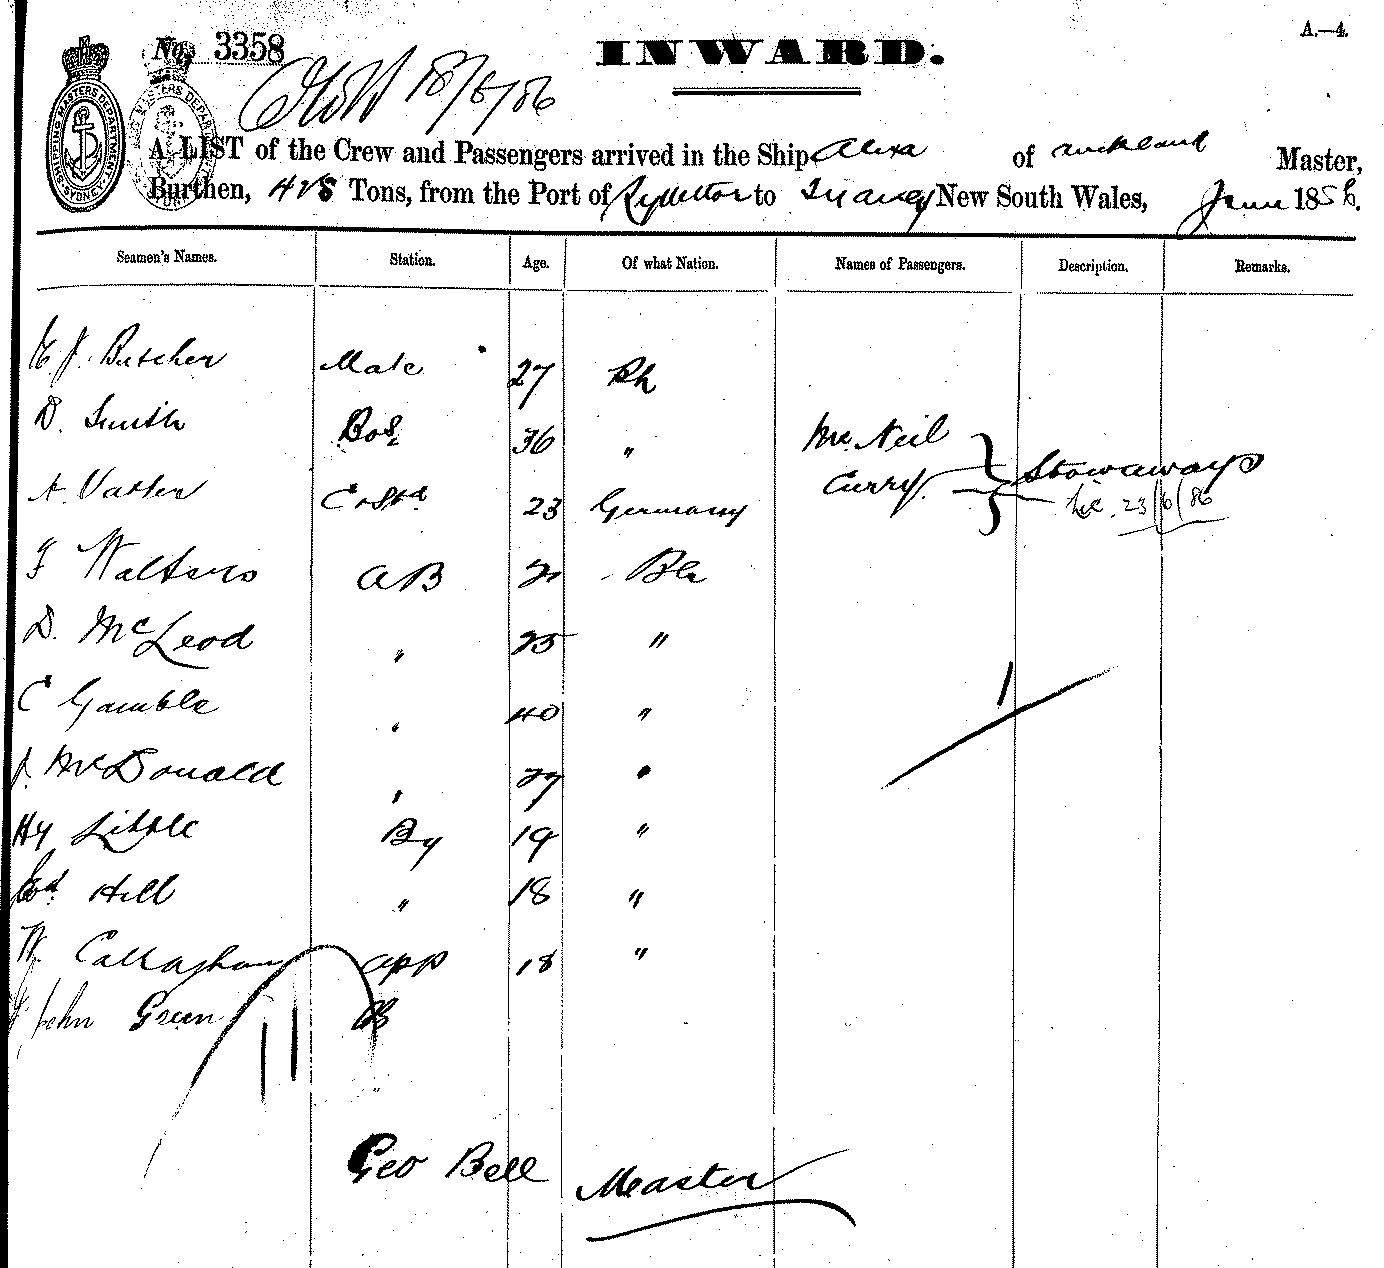 A.—4.
No. 3358
INWARD.
18/6/86
SHIPPING MASTERS DEPARTMENT SYDNEY
A LIST of the Crew and Passengers arrived in the Ship Alexa of Auckland Master,
Burthen, 428 Tons, from the Port of to New South Wales, June 1886.
Seamen's Names. Station. Age. Of what Nation. Names of Passengers. Description. Remarks.
Butcher Mate 27
D. Smith Bos 36 "
Mc Neil
A. 23 Germany Curry Stowaways
23/6/86
F Walters AB
D. McLeod " 25 "
C Gamble " 40 "
J. McDonald " 27 "
Hy Little By 19 "
Ed Hill " 18 "
W. Callaghan app 18 "
John Green
Geo Bell Master